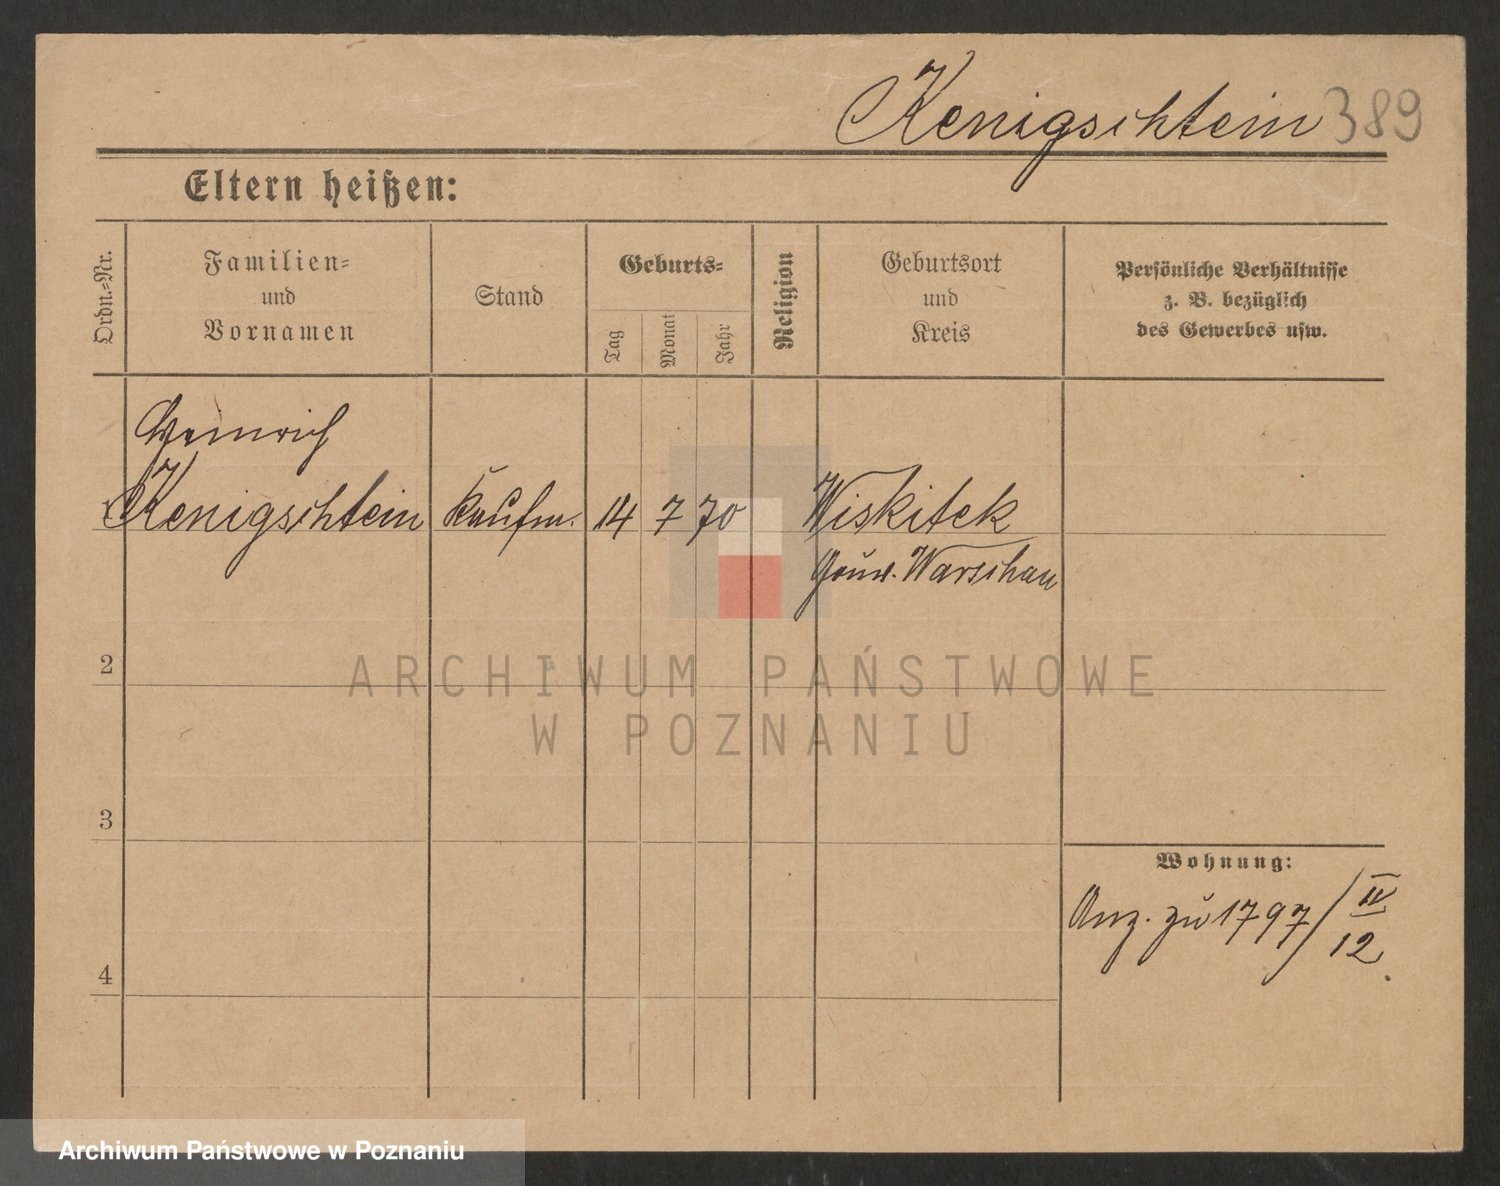 Kenigschtein 389
Eltern heißen:
Ordn.-Nr.
Familien-
und
Vornamen
Stand
Geburts-
Tag
Monat
Jahr
Religion
Geburtsort
und
Kreis
Persönliche Verhältnisse
z. B. bezüglich
des Gewerbes usw.
Heinrich
1 Kenigschtein Kaufm. 14 7 70 Wiskitek
Gouv. Warschau
2
3
4
Wohnung:
Anz. zu 1797/IV
12
ARCHIWUM PAŃSTWOWE
W POZNANIU
Archiwum Państwowe w Poznaniu